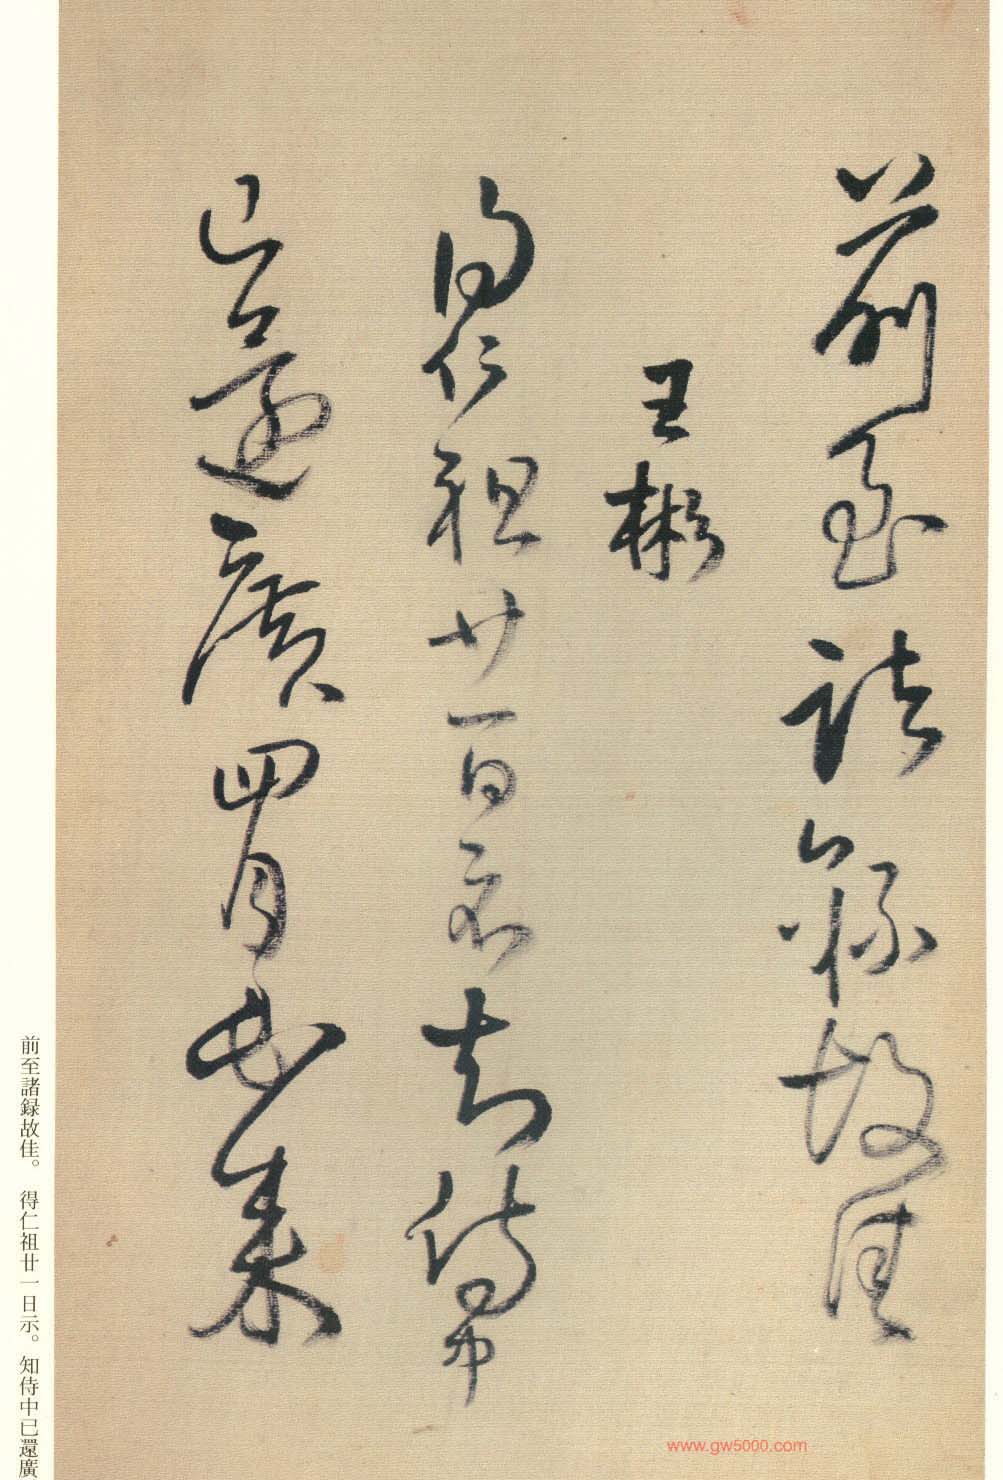 前至諸録故佳
王彬
得仁祖廿一日示知侍中
已還廣四月書来
前至諸録故佳。得仁祖廿一日示。知侍中已還廣
www.gw5000.com